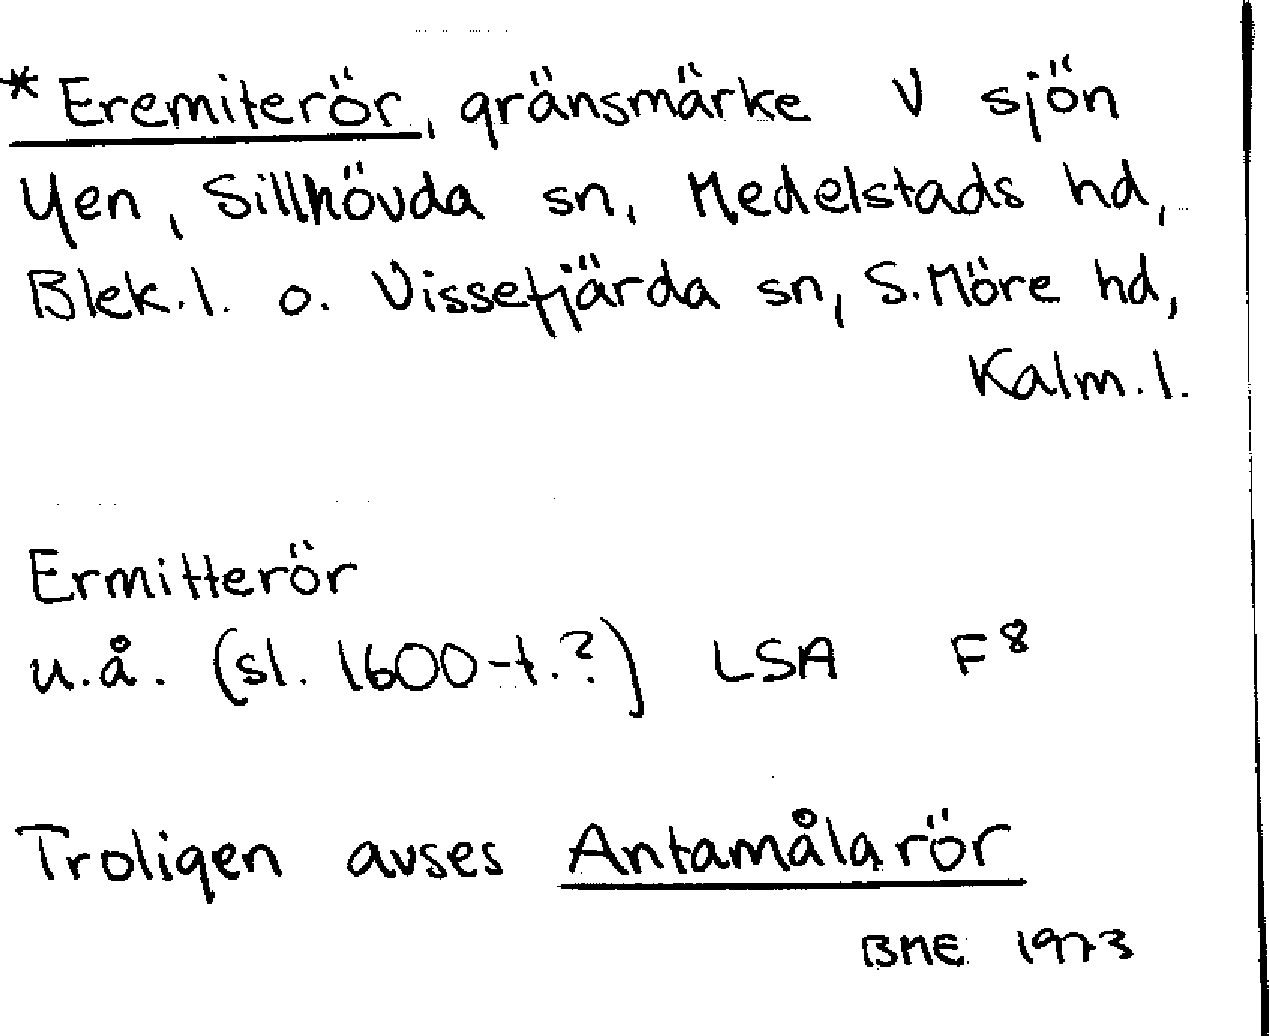 * Eremiterör, gränsmärke V sjön
Yen, Sillhövda sn, Medelstads hd,
Blek.l. o. Vissefjärda sn, S. Möre hd,
Kalm.l.
Ermitterör
u.å. (sl. 1600-t.?) LSA F⁸
Troligen avses Antamålarör
BME 1973